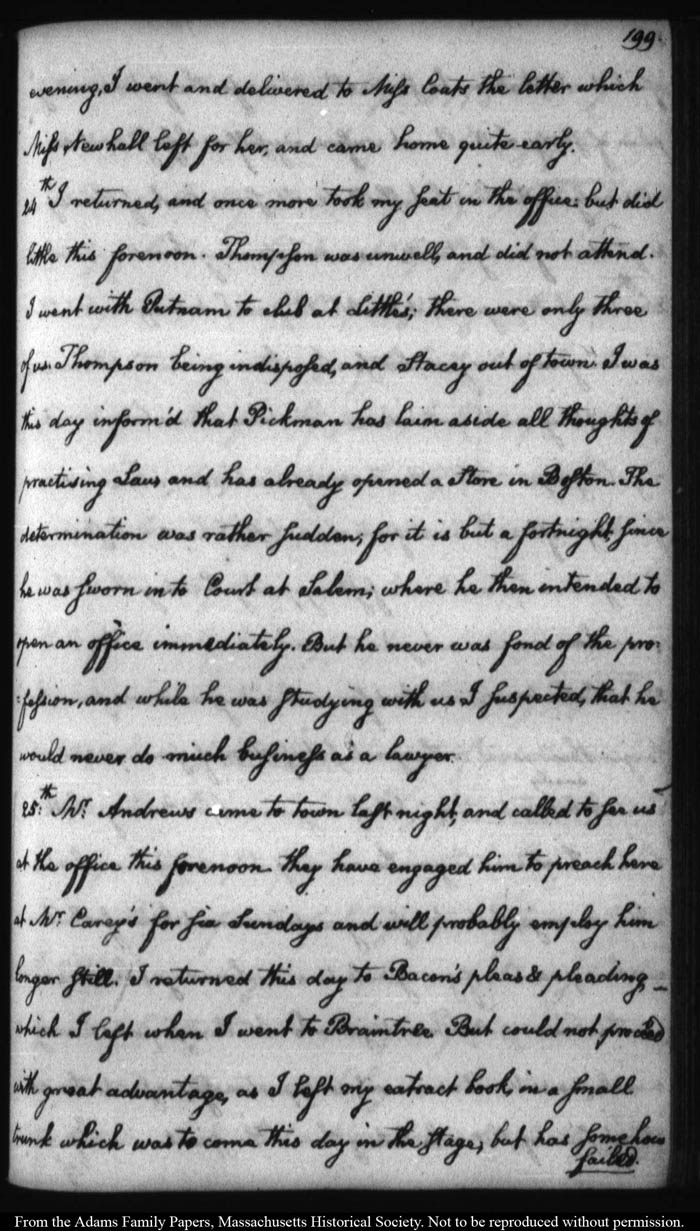 199.
evening, I went and delivered to Miss Coats the letter which
Miss Newhall left for her, and came home quite early.
24th I returned, and once more took my seat in the office: but did
little this forenoon. Thompson was unwell, and did not attend.
I went with Putnam to club at Little's; there were only three
of us. Thompson being indisposed, and Stacey out of town. I was
this day inform'd that Pickman has lain aside all thoughts of
practising Law and has already opened a Store in Boston. The
determination was rather sudden; for it is but a fortnight since
he was sworn in to Court at Salem; where he then intended to
open an office immediately. But he never was fond of the pro:
:fession, and while he was studying with us I suspected, that he
would never do much business as a lawyer.
25:th Mr. Andrews came to town last night, and called to see us
at the office this forenoon. they have engaged him to preach here
at Mr. Carey's for six Sundays and will probably employ him
longer still. I returned this day to Bacon's pleas & pleading,
which I left when I went to Braintree. But could not proceed
with great advantage, as I left my extract book, in a small
trunk which was to come this day in the stage; but has somehow
failed.
From the Adams Family Papers, Massachusetts Historical Society. Not to be reproduced without permission.